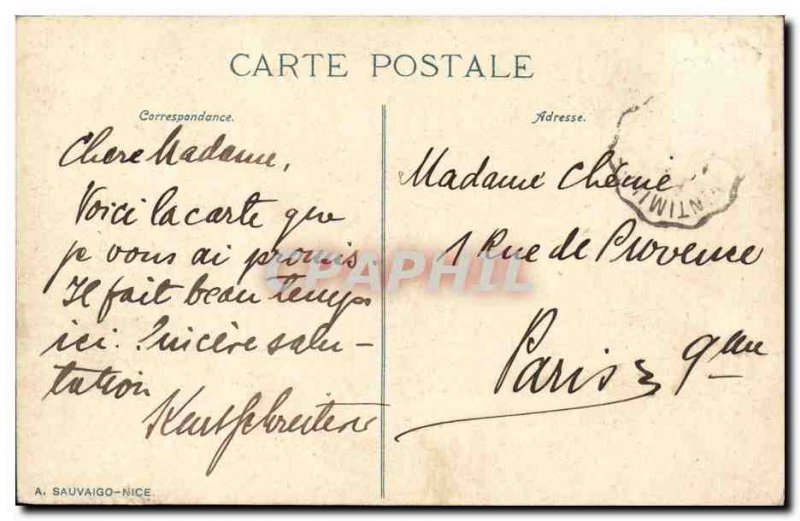 CARTE POSTALE
Correspondance.
Adresse.
Chere Madame,
Voici la carte que
je vous ai promis.
Il fait beau temps
ici. Sincère salu-
tation
Madame Chénié
1 Rue de Provence
Paris 9eme
NTIMI
CPAPHIL
A. SAUVAIGO-NICE